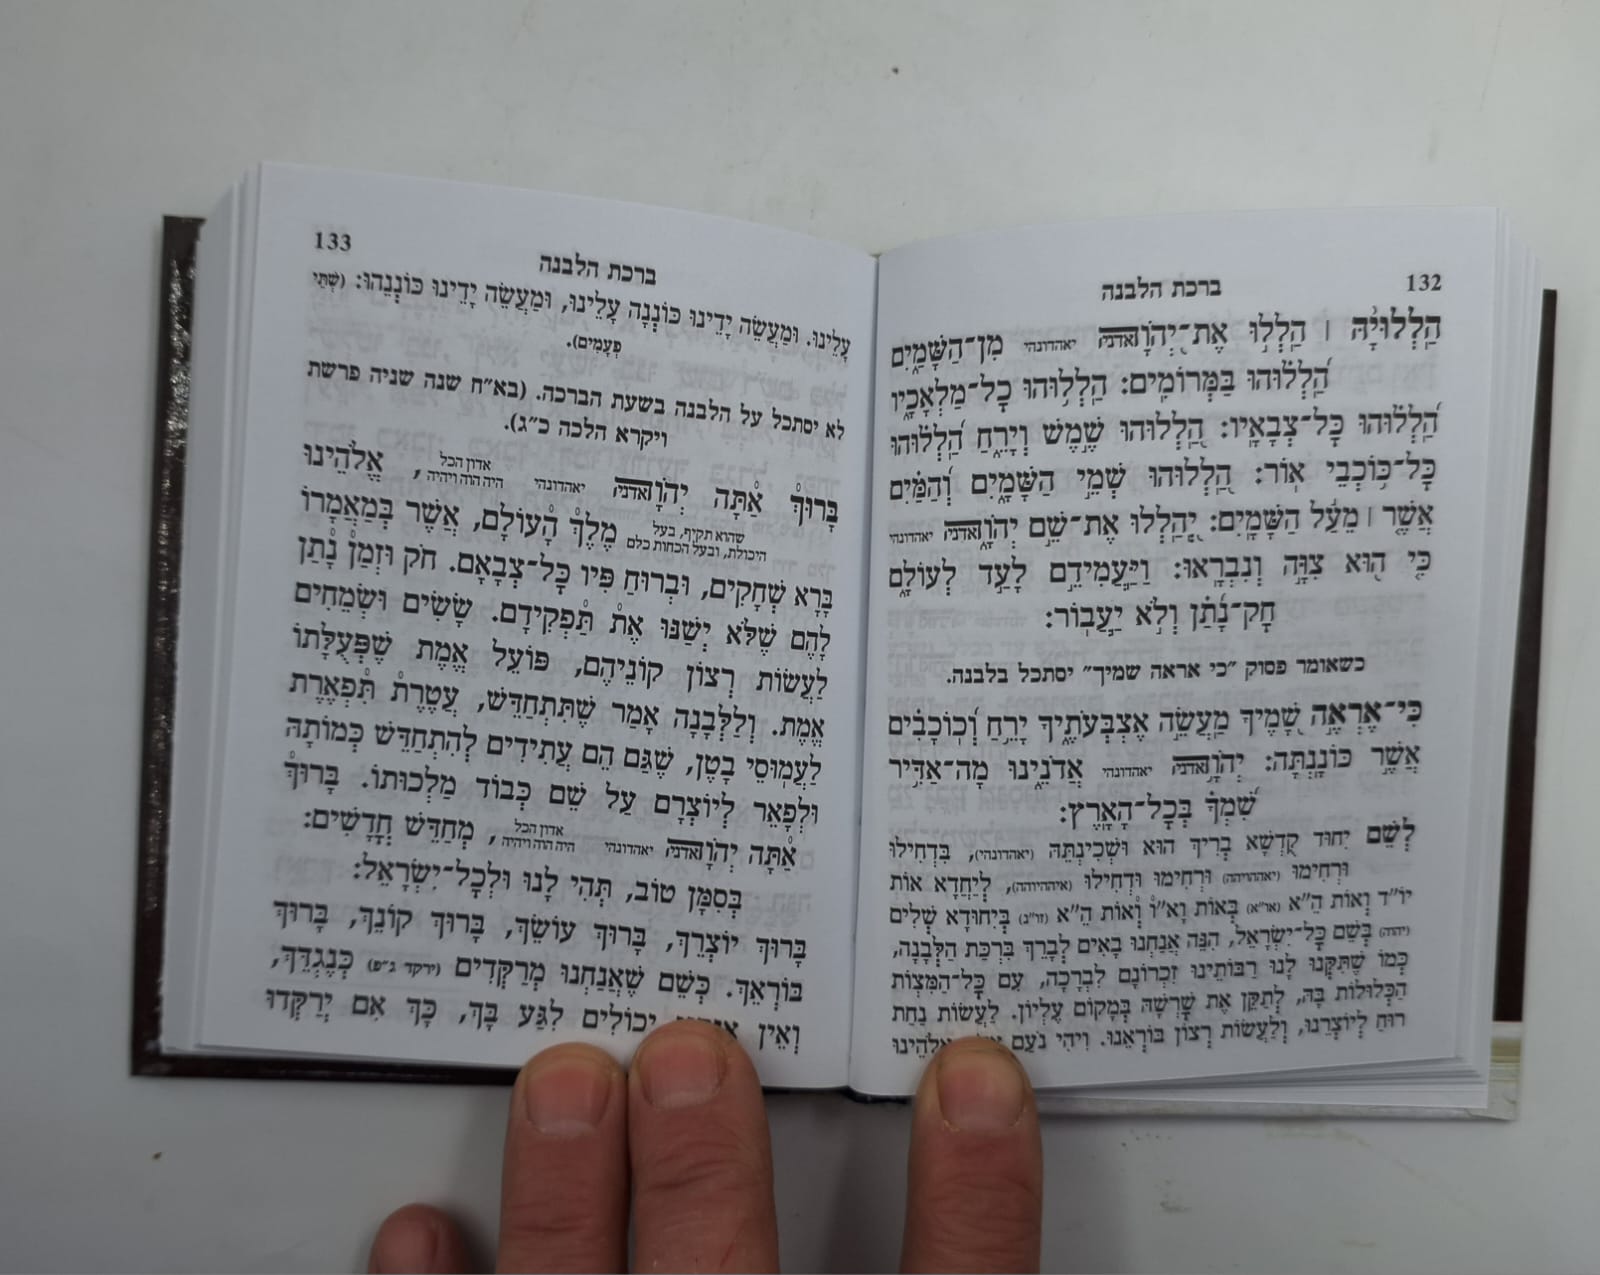 132
ברכת הלבנה
הַֽלְלוּיָ֨הּ ׀ הַֽלְל֣וּ אֶת־יְ֭הֹוָה אדני יאהדונהי מִן־הַשָּׁמַ֑יִם
הַֽ֝לְל֗וּהוּ בַּמְּרוֹמִֽים׃ הַֽלְל֥וּהוּ כׇל־מַלְאָכָ֑יו
הַֽ֝לְל֗וּהוּ כׇּל־צְבָאָֽיו׃ הַֽ֭לְלוּהוּ שֶׁ֣מֶשׁ וְיָרֵ֑חַ הַֽ֝לְל֗וּהוּ
כׇּל־כּ֥וֹכְבֵי אֽוֹר׃ הַֽ֭לְלוּהוּ שְׁמֵ֣י הַשָּׁמָ֑יִם וְ֝הַמַּ֗יִם
אֲשֶׁ֤ר ׀ מֵעַ֬ל הַשָּׁמָֽיִם׃ יְֽ֭הַלְלוּ אֶת־שֵׁ֣ם יְהֹוָ֑ה אדני יאהדונהי
כִּ֤י ה֖וּא צִוָּ֣ה וְנִבְרָֽאוּ׃ וַיַּעֲמִידֵ֣ם לָעַ֣ד לְעוֹלָ֑ם
חׇק־נָ֝תַ֗ן וְלֹ֣א יַעֲבֽוֹר׃
כשאומר פסוק "כי אראה שמיך" יסתכל בלבנה.
כִּֽי־אֶרְאֶ֣ה שָׁ֭מֶיךָ מַעֲשֵׂ֣ה אֶצְבְּעֹתֶ֑יךָ יָרֵ֥חַ וְ֝כֽוֹכָבִ֗ים
אֲשֶׁ֣ר כּוֹנָֽנְתָּה׃ יְהֹוָ֥ה אדני יאהדונהי אֲדֹנֵ֑ינוּ מָה־אַדִּ֥יר
שִׁ֝מְךָ֗ בְּכׇל־הָאָֽרֶץ׃
לְשֵׁם יִחוּד קֻדְשָׁא בְּרִיךְ הוּא וּשְׁכִינְתֵּהּ (יאהדונהי), בִּדְחִילוּ
וּרְחִימוּ (יאההויהה) וּרְחִימוּ וּדְחִילוּ (איההיוהה), לְיַחֲדָא אוֹת
יוֹ"ד וְאוֹת הֵ"א (או"א) בְּאוֹת וָא"ו וְאוֹת הֵ"א (זו"נ) בְּיִחוּדָא שְׁלִים
(יהוה) בְּשֵׁם כׇּל־יִשְׂרָאֵל, הִנֵּה אֲנַחְנוּ בָאִים לְבָרֵךְ בִּרְכַּת הַלְּבָנָה,
כְּמוֹ שֶׁתִּקְּנוּ לָנוּ רַבּוֹתֵינוּ זִכְרוֹנָם לִבְרָכָה, עִם כׇּל־הַמִּצְוֹת
הַכְּלוּלוֹת בָּהּ, לְתַקֵּן אֶת שָׁרְשָׁהּ בְּמָקוֹם עֶלְיוֹן. לַעֲשׂוֹת נַחַת
רוּחַ לְיוֹצְרֵנוּ, וְלַעֲשׂוֹת רְצוֹן בּוֹרְאֵנוּ. וִיהִי נֹעַם אֱלֹהֵינוּ
133
ברכת הלבנה
עָלֵינוּ. וּמַעֲשֵׂה יָדֵינוּ כּוֹנְנָה עָלֵינוּ, וּמַעֲשֵׂה יָדֵינוּ כּוֹנְנֵהוּ: (שְׁתֵּי
פְעָמִים).
לא יסתכל על הלבנה בשעת הברכה. (בא"ח שנה שניה פרשת
ויקרא הלכה כ"ג).
בָּרוּךְ אַתָּה יְהֹוָה אדני יאהדונהי אדון הכל היה הוה ויהיה, אֱלֹהֵינוּ
שהוא תקיף, בעל היכולת, ובעל הכחות כלם מֶלֶךְ הָעוֹלָם, אֲשֶׁר בְּמַאֲמָרוֹ
בָּרָא שְׁחָקִים, וּבְרוּחַ פִּיו כׇּל־צְבָאָם. חֹק וּזְמַן נָתַן
לָהֶם שֶׁלֹּא יְשַׁנּוּ אֶת תַּפְקִידָם. שָׂשִׂים וּשְׂמֵחִים
לַעֲשׂוֹת רְצוֹן קוֹנֵיהֶם, פּוֹעֵל אֱמֶת שֶׁפְּעֻלָּתוֹ
אֱמֶת. וְלַלְּבָנָה אָמַר שֶׁתִּתְחַדֵּשׁ, עֲטֶרֶת תִּפְאֶרֶת
לַעֲמוּסֵי בָטֶן, שֶׁגַּם הֵם עֲתִידִים לְהִתְחַדֵּשׁ כְּמוֹתָהּ
וּלְפָאֵר לְיוֹצְרָם עַל שֵׁם כְּבוֹד מַלְכוּתוֹ. בָּרוּךְ
אַתָּה יְהֹוָה אדני יאהדונהי אדון הכל היה הוה ויהיה, מְחַדֵּשׁ חֳדָשִׁים:
בְּסִמָּן טוֹב, תְּהִי לָנוּ וּלְכׇל־יִשְׂרָאֵל:
בָּרוּךְ יוֹצְרֵךְ, בָּרוּךְ עוֹשֵׂךְ, בָּרוּךְ קוֹנֵךְ, בָּרוּךְ
בּוֹרְאֵךְ. כְּשֵׁם שֶׁאֲנַחְנוּ מְרַקְּדִים (ירקד ג"פ) כְּנֶגְדֵּךְ,
וְאֵין יְכוֹלִים לִגַּע בָּךְ, כָּךְ אִם יְרַקְּדוּ